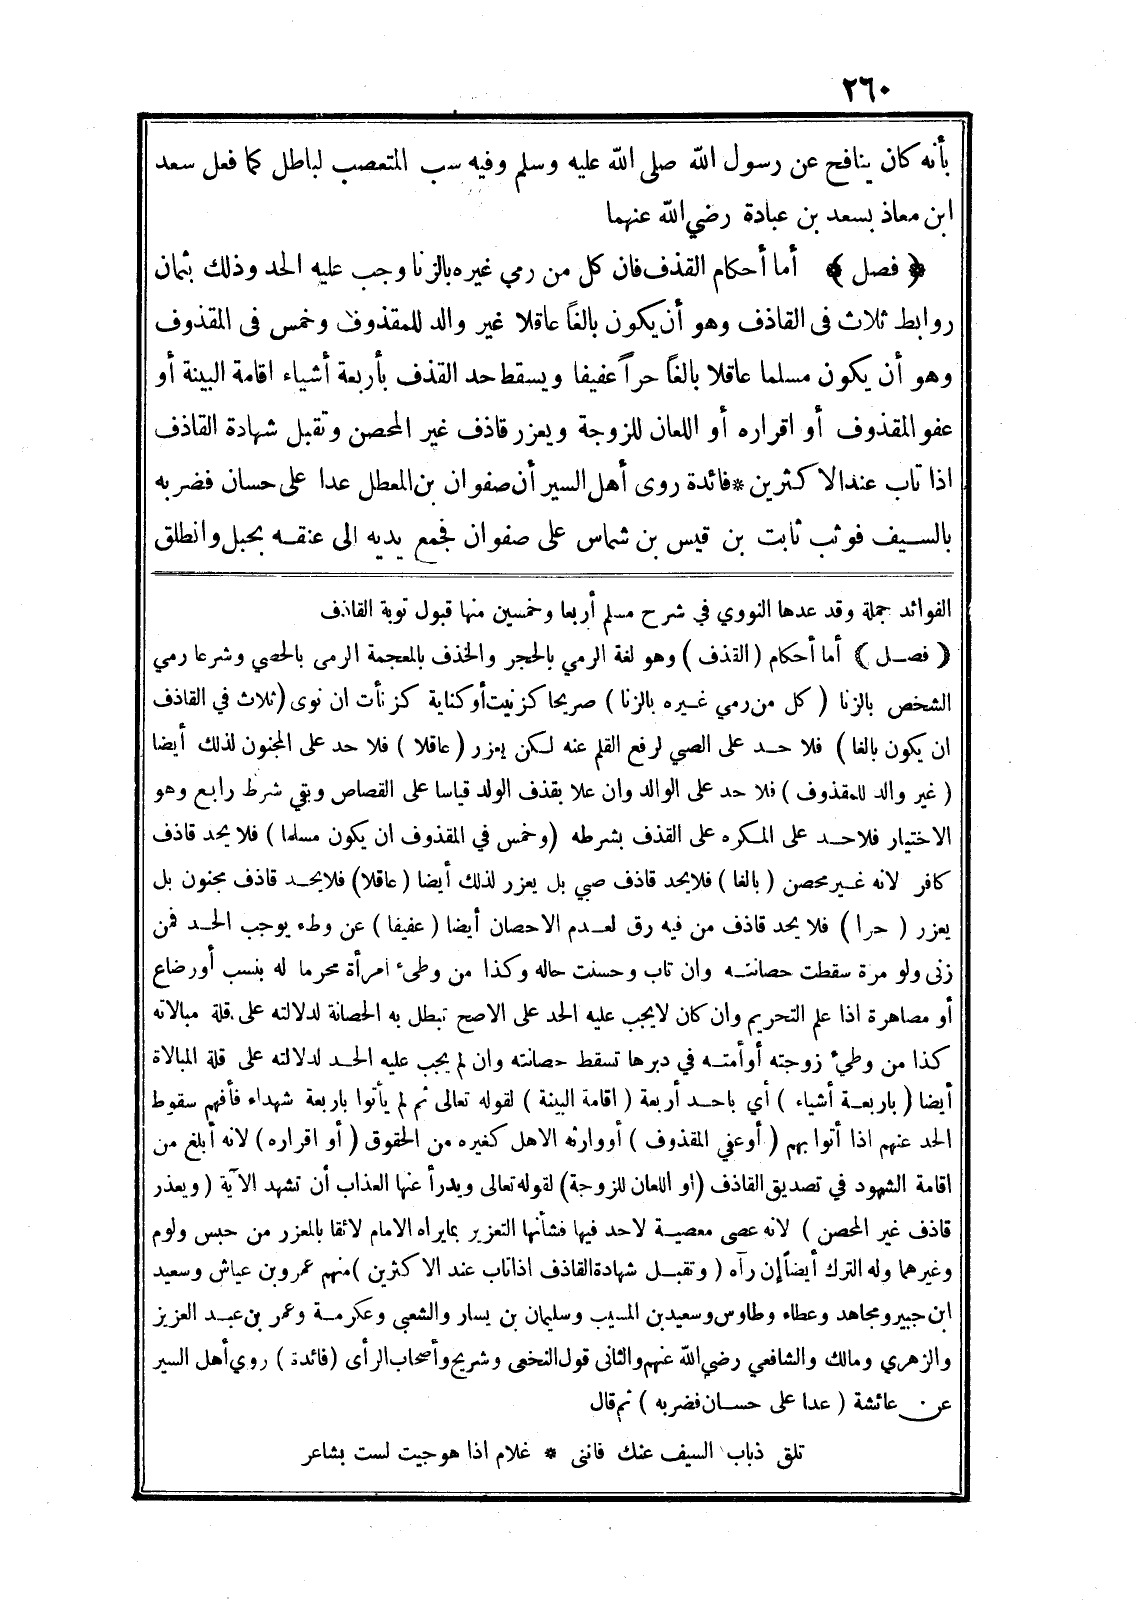 ٢٦٠
بأنه كان ينافح عن رسول الله صلى الله عليه وسلم وفيه سب المتعصب لباطل كما فعل سعد
ابن معاذ بسعد بن عبادة رضي الله عنهما
﴿ فصل ﴾ أما أحكام القذف فان كل من رمي غيره بالزنا وجب عليه الحد وذلك بثمان
روابط ثلاث فى القاذف وهو أن يكون بالغاً عاقلا غير والد للمقذوف وخمس فى المقذوف
وهو أن يكون مسلما عاقلا بالغاً حراً عفيفا ويسقط حد القذف بأربعة أشياء اقامة البينة أو
عفو المقذوف أو اقراره أو اللعان للزوجة ويعزر قاذف غير المحصن وتقبل شهادة القاذف
اذا تاب عند الاكثرين * فائدة روى أهل السير أن صفوان بن المعطل عدا على حسان فضربه
بالسيف فوثب ثابت بن قيس بن شماس على صفوان فجمع يديه الى عنقه بحبل وانطلق
الفوائد جملة وقد عدها النووي في شرح مسلم أربعا وخمسين منها قبول توبة القاذف
﴿ فصل ﴾ أما أحكام ( القذف ) وهو لغة الرمي بالحجر والخذف بالمعجمة الرمى بالحصي وشرعا رمي
الشخص بالزنا ( كل من رمي غيره بالزنا ) صريحا كزنيت أو كناية كزنأت ان نوى (ثلاث في القاذف
ان يكون بالغا ) فلا حد على الصبي لرفع القلم عنه لكن يعزر ( عاقلا ) فلا حد على المجنون لذلك أيضا
( غير والد للمقذوف ) فلا حد على الوالد وان علا بقذف الولد قياسا على القصاص وبقي شرط رابع وهو
الاختيار فلا حد على المكره على القذف بشرطه (وخمس في المقذوف ان يكون مسلما ) فلا يحد قاذف
كافر لانه غير محصن ( بالغا ) فلا يحد قاذف صبي بل يعزر لذلك أيضا ( عاقلا) فلا يحد قاذف مجنون بل
يعزر ( حرا ) فلا يحد قاذف من فيه رق لعدم الاحصان أيضا ( عفيفا ) عن وطء يوجب الحد فمن
زنى ولو مرة سقطت حصانته وان تاب وحسنت حاله وكذا من وطىء امرأة محرما له بنسب أو رضاع
أو مصاهرة اذا علم التحريم وان كان لا يجب عليه الحد على الاصح تبطل به الحصانة لدلالته على قلة مبالاته
كذا من وطىء زوجته أو أمته في دبرها تسقط حصانته وان لم يجب عليه الحد لدلالته على قلة المبالاة
أيضا ( باربعة أشياء ) أي باحد أربعة ( اقامة البينة ) لقوله تعالى ثم لم يأتوا باربعة شهداء فأفهم سقوط
الحد عنهم اذا أتوا بهم ( أو عفي المقذوف ) أو وارثه الاهل كغيره من الحقوق ( أو اقراره ) لانه أبلغ من
اقامة الشهود في تصديق القاذف (او اللعان للزوجة) لقوله تعالى ويدرأ عنها العذاب أن تشهد الآية ( ويعذر
قاذف غير المحصن ) لانه عصى معصية لا حد فيها فشأنها التعزير بما يراه الامام لائقا بالمعزر من حبس ولوم
وغيرهما وله الترك أيضاً إن رآه ( وتقبل شهادة القاذف اذا تاب عند الاكثرين ) منهم عمرو بن عياش وسعيد
ابن جبير ومجاهد وعطاء وطاوس وسعيد بن المسيب وسليمان بن يسار والشعبي وعكرمة وعمر بن عبد العزيز
والزهري ومالك والشافعي رضي الله عنهم والثانى قول النخعى وشريح وأصحاب الرأى (فائدة ) روي أهل السير
عن عائشة ( عدا على حسان فضربه ) ثم قال
تلق ذباب السيف عنك فاننى * غلام اذا هوجيت لست بشاعر